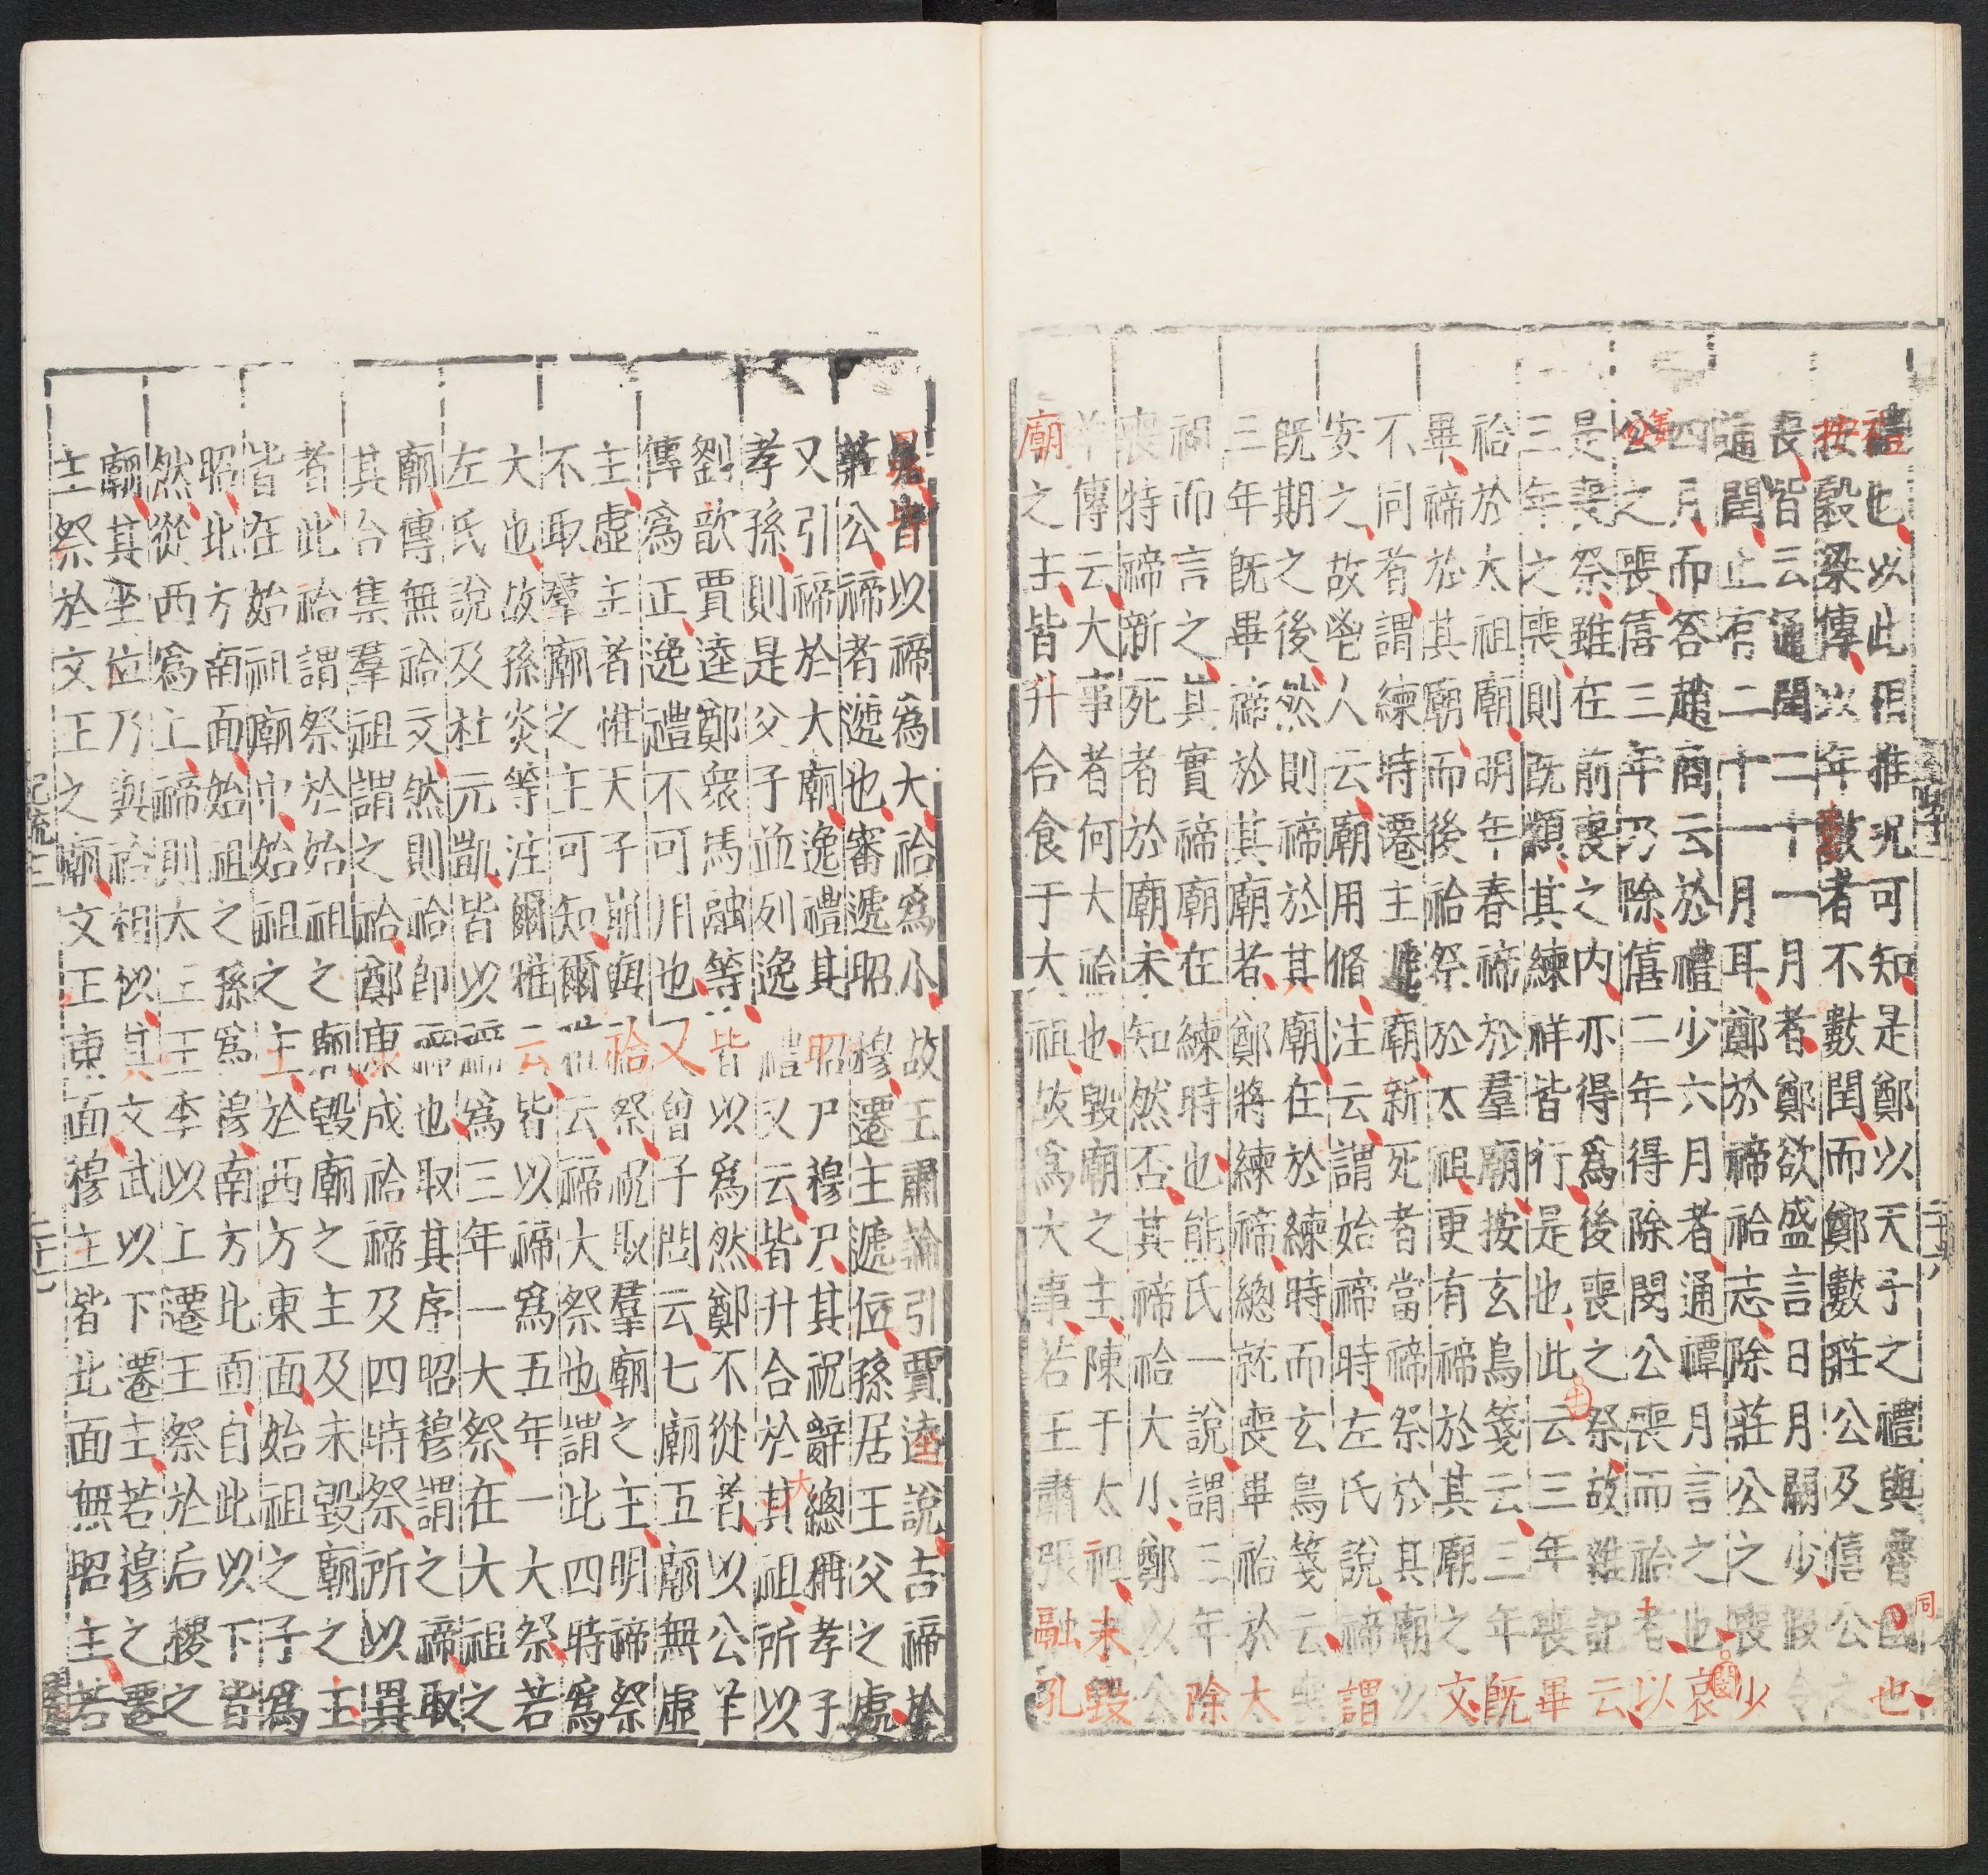 禮也以此相推況可知是鄭以天子之禮與魯同也
按穀梁傳以年數者不數閏而鄭數莊公及僖公之
喪皆云通閏二十一月者鄭欲盛言日月關少假令
通閏止有二十一月耳鄭於禘祫志除莊公之喪少
四月而答趙商云於禮少六月者通禫月言之也哀
姜之喪僖三年乃除僖二年得除閔公喪而祫者以
是喪祭雖在前喪之内亦得爲後喪之祭故雜記云
三年之喪則既顈其練祥皆行是也此云三年喪畢
祫於太祖廟明年春禘於羣廟按玄鳥箋云三年既
畢禘於其廟而後祫祭於太祖更有禘於其廟之文
不同者謂練時遷主遞廟新死者當禘祭於其廟以
安之故鬯人云廟用脩注云謂始禘時左氏說禘謂
既期之後然則禘於其廟在於練時而玄鳥箋云喪
三年既畢禘於其廟者鄭將練禘總就喪畢祫於太
祖而言之其實禘廟在練時也熊氏一說謂三年除
喪特禘新死者於廟未知然否其禘祫大小鄭以公
羊傳云大事者何大祫也毀廟之主陳于太祖未毀
廟之主皆升合食于大祖故爲大事若王肅張融孔
晁皆以禘爲大祫爲小故王肅論引賈逵說吉禘於
莊公禘者遞也審遞昭穆遷主遞位孫居王父之處
又引禘於大廟逸禮其昭尸穆尸其祝辭總稱孝子
孝孫則是父子並列逸禮又云皆升合於其祖所以
劉歆賈逵鄭衆馬融等皆以爲然鄭不從者以公羊
傳爲正逸禮不可用也又曾子問云七廟五廟無虛
主虛主者惟天子崩與祫祭祝取羣廟之主明禘祭
不取羣廟之主可知爾雅云禘大祭也謂比四時爲
大也故孫炎等注爾雅云皆以禘爲五年一大祭若
左氏說及杜元凱皆以禘爲三年一大祭在大祖之
廟傳無祫文然則祫即禘也取其序昭穆謂之禘取
其合集羣祖謂之祫鄭康成祫禘及四時祭所以異
者此祫謂祭於始祖之廟毀廟之主及未毀廟之主
皆在始祖廟中始祖之主於西方東面始祖之子爲
昭北方南面始祖之孫爲穆南方北面自此以下皆
然從西爲上禘則太王王季以上遷主祭於后稷之
廟其坐位乃與祫相似其文武以下遷主若穆之遷
主祭於文王之廟文王東面穆主皆北面無昭主若